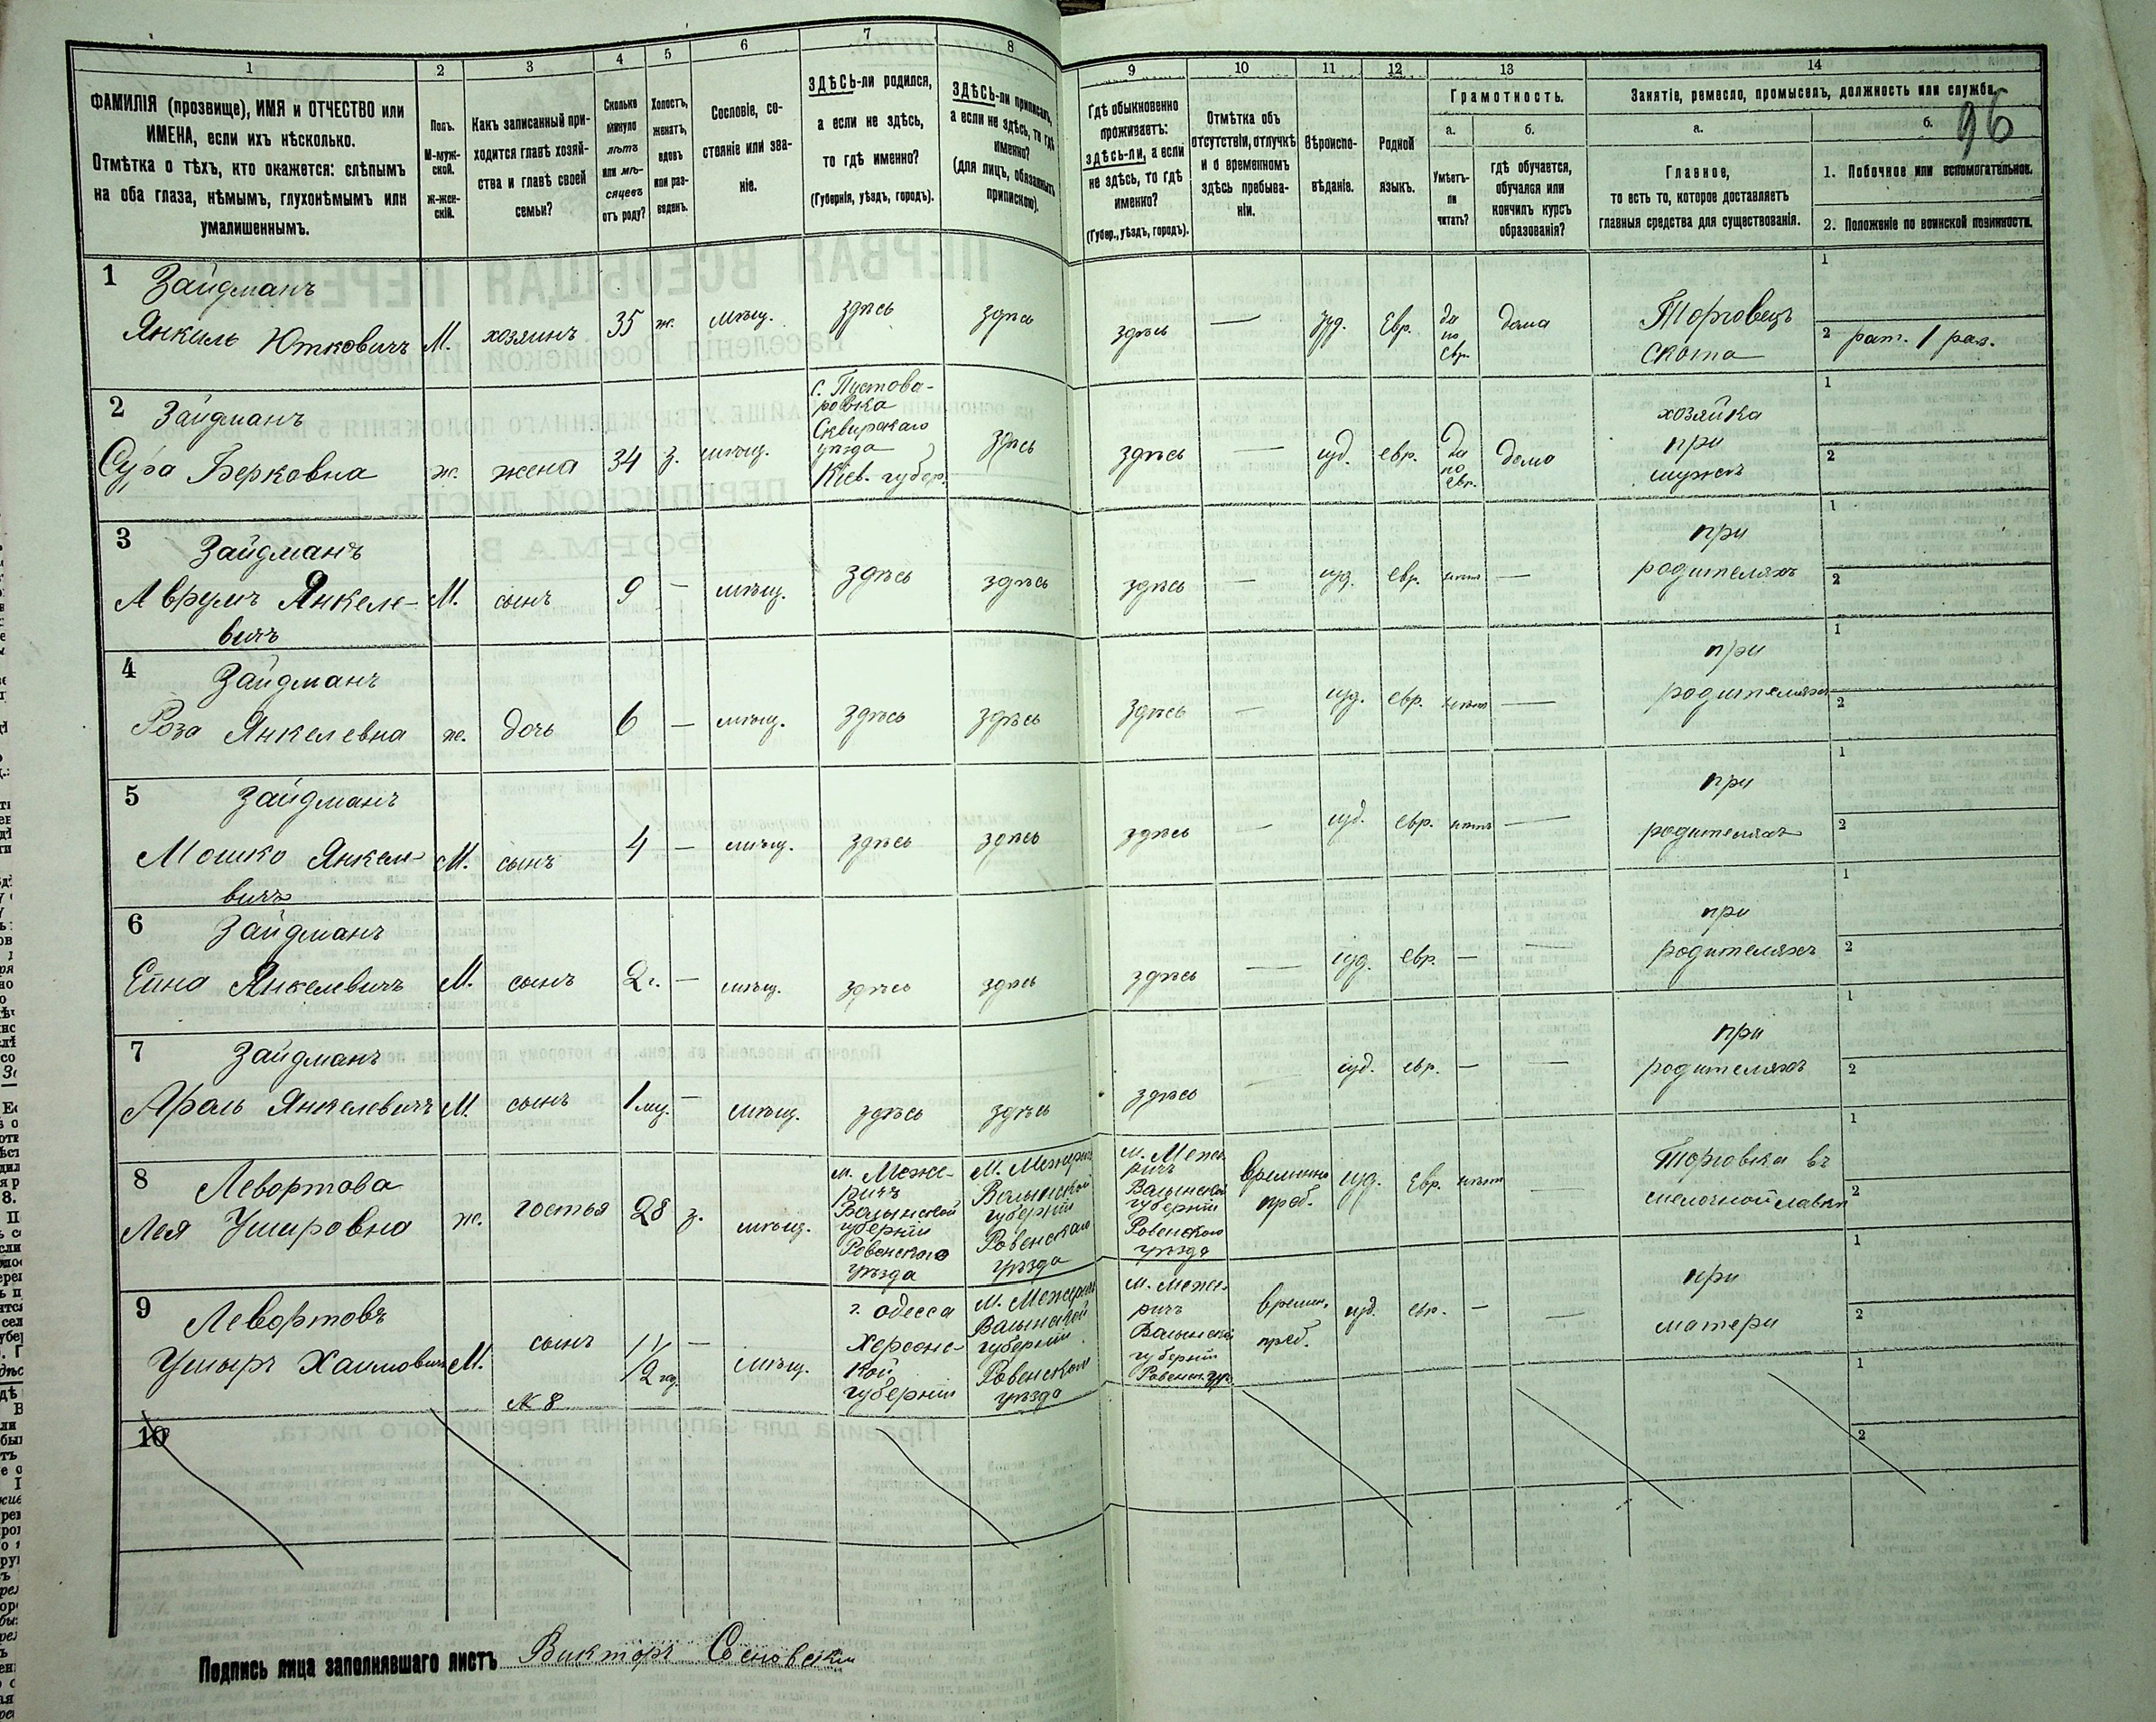 96
1 2 3 4 5 6 7 8 9 10 11 12 13 14
ФАМИЛІЯ (прозвище), ИМЯ и ОТЧЕСТВО или
ИМЕНА, если ихъ нѣсколько.
Отмѣтка о тѣхъ, кто окажется: слѣпымъ
на оба глаза, нѣмымъ, глухонѣмымъ или
умалишеннымъ.
Полъ.
М-муж-
ской.
Ж-жен-
скій.
Какъ записанный при-
ходится главѣ хозяй-
ства и главѣ своей
семьи?
Сколько
минуло
лѣтъ
или мѣ-
сяцевъ
отъ роду?
Холостъ,
женатъ,
вдовъ
или раз-
веденъ.
Сословіе, со-
стояніе или зва-
ніе.
ЗДѢСЬ-ли родился,
а если не здѣсь,
то гдѣ именно?
(Губернія, уѣздъ, городъ).
ЗДѢСЬ-ли приписанъ,
а если не здѣсь, то гдѣ
именно?
(для лицъ, обязанныхъ
припискою).
Гдѣ обыкновенно
проживаетъ:
здѣсь-ли, а если
не здѣсь, то гдѣ
именно?
(Губер., уѣздъ, городъ).
Отмѣтка объ
отсутствіи, отлучкѣ
и о временномъ
здѣсь пребыва-
ніи.
Вѣроиспо-
вѣданіе.
Родной
языкъ.
Грамотность.
а.
Умѣетъ-
ли
читать?
б.
гдѣ обучается,
обучался или
кончилъ курсъ
образованія?
Занятіе, ремесло, промыселъ, должность или служба.
а.
Главное,
то есть то, которое доставляетъ
главныя средства для существованія.
б.
1. Побочное или вспомогательное.
2. Положеніе по воинской повинности.
1
Зайдманъ
Янкиль Юнковичъ М. хозяинъ 35 ж. мѣщ. здѣсь здѣсь здѣсь — іуд. Евр. да по евр. дома
Торговецъ
скота
1
2 рат. 1 раз.
2
Зайдманъ
Сура Берковна ж. жена 34 з. мѣщ.
с. Пустова-
ровка
Сквирскаго
уѣзда
Кіев. губер.
здѣсь здѣсь — іуд. евр. да по евр. дома
хозяйка
при
мужѣ
1
2
3
Зайдманъ
Аврумъ Янкеле-
вичъ
М. сынъ 9 — мѣщ. здѣсь здѣсь здѣсь — іуд. евр. нѣтъ —
при
родителяхъ
1
2
4
Зайдманъ
Роза Янкелевна ж. дочь 6 — мѣщ. здѣсь здѣсь здѣсь — іуд. евр. нѣтъ —
при
родителяхъ
1
2
5
Зайдманъ
Мошко Янкеле-
вичъ
М. сынъ 4 — мѣщ. здѣсь здѣсь здѣсь — іуд. евр. нѣтъ —
при
родителяхъ
1
2
6
Зайдманъ
Ейна Янкелевичъ М. сынъ 2 г. — мѣщ. здѣсь здѣсь здѣсь — іуд. евр. — —
при
родителяхъ
1
2
7
Зайдманъ
Ароль Янкелевичъ М. сынъ 1 мц. — мѣщ. здѣсь здѣсь здѣсь — іуд. евр. — —
при
родителяхъ
1
2
8
Левортова
Лея Умировна ж. гостья 28 з. мѣщ.
м. Меже-
ричъ
Волынской
губерніи
Ровенскаго
уѣзда
м. Межеричъ
Волынской
губерніи
Ровенскаго
уѣзда
м. Меже-
ричъ
Волынской
губерніи
Ровенскаго
уѣзда
временно
преб.
іуд. Евр. нѣтъ —
Торговка въ
мелочной лавки
1
2
9
Левортовъ
Умыръ Хаимовичъ М. сынъ
№ 8
1 1/2 год. — мѣщ.
г. Одесса
Херсонс-
кой
губерніи
м. Межеричъ
Волынской
губерніи
Ровенскаго
уѣзда
м. Меже-
ричъ
Волынской
губерніи
Ровенск. уѣз.
времен.
преб.
іуд. евр. — —
при
матери
1
2
10
1
2
Подпись лица заполнявшаго листъ Викторъ Сосновскій